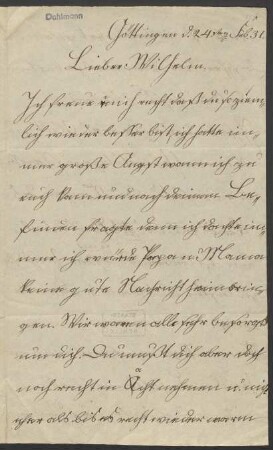 Dahlmann
Göttingen d. 24sten Feb. 31.
Lieber Wilhelm.
Ich freue mich recht daß du so ziem-
lich wieder besser bist, ich hatte im-
mer große Angst wann ich zu
euch kam und nach deinem Be-
finden fragte denn ich dachte im-
mer ich würde Papa u Mama
keine gute Nachricht heim brin-
gen. Wir waren alle sehr besorgt
um dich. Du mußt dich aber doch
noch recht in Acht nehmen u. nicht
eher als bis es recht wieder warm